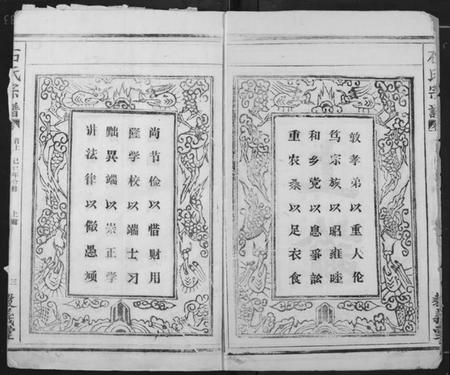 石氏宗譜
敦孝弟以重人伦
笃宗族以昭雍睦
和乡党以息爭訟
重农桑以足衣食
尚节俭以惜财用
隆学校以端士习
黜异端以崇正学
讲法律以儆愚顽
石氏宗譜
首上
三